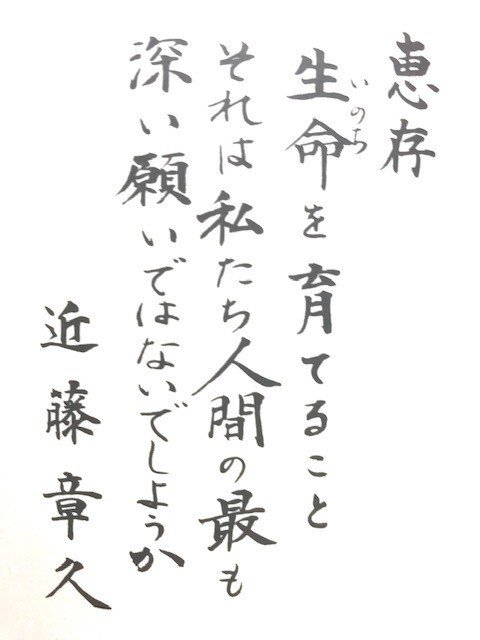 恵存
生命を育てること
いのち
それは私たち人間の最も
深い願いではないでしょうか
近藤章久